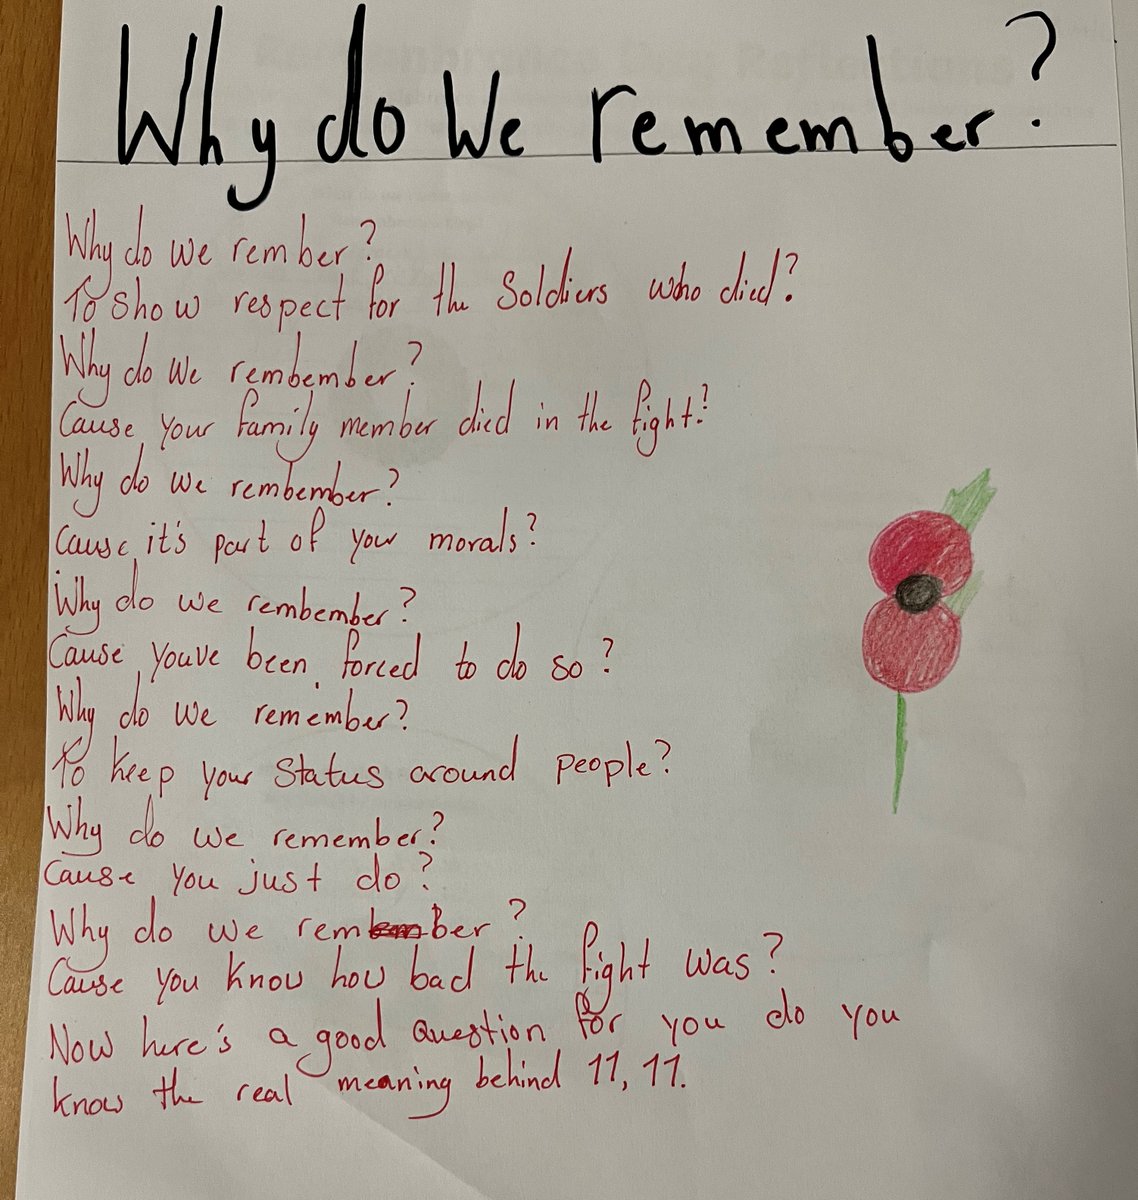 Why do we remember?
Why do we rember?
To show respect for the Soldiers who died?
Why do we rembember?
Cause your family member died in the fight?
Why do we rembember?
Cause it's part of your morals?
Why do we rembember?
Cause youve been forced to do so?
Why do we remember?
To keep your status around people?
Why do we remember?
Cause you just do?
Why do we rember?
Cause you know how bad the fight was?
Now here's a good question for you do you
know the real meaning behind 11, 11.